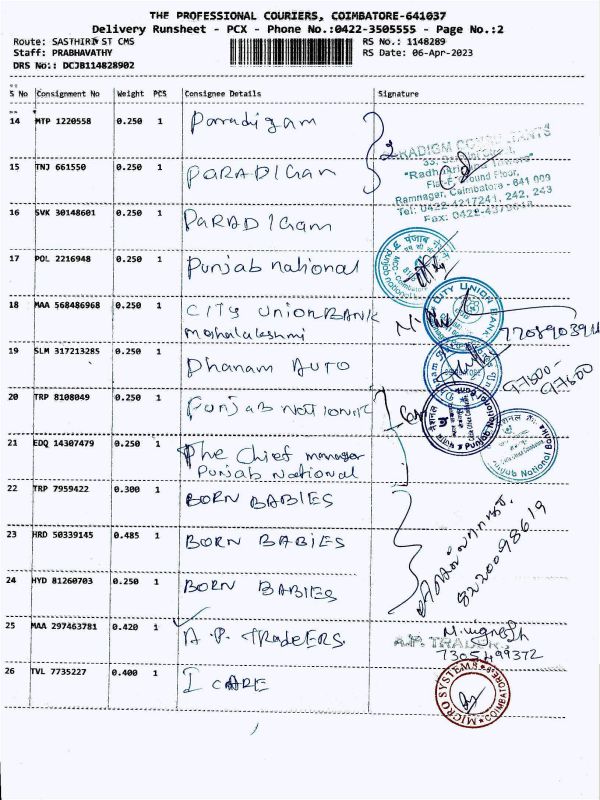 THE PROFESSIONAL COURIERS, COIMBATORE-641037
Delivery Runsheet - PCX - Phone No.:0422-3505555 - Page No.:2
Route: SASTHIRI ST CMS
Staff: PRABHAVATHY
DRS No.: DCJB114828902
RS No.: 1148289
RS Date: 06-Apr-2023
S No Consignment No Weight PCS Consignee Details Signature
14 MTP 1220558 0.250 1 Paradigam
2
15 TNJ 661550 0.250 1 PARADIGam
CONSULTANTS
Ground Floor,
Ramnagar, Coimbatore - 641 009
Tel: 0422-4217241, 242, 243
Fax: 0422-
16 SVK 30148601 0.250 1 PARADIGam
17 POL 2216948 0.250 1 Punjab national
18 MAA 568486968 0.250 1 CITY UNION BANK
mahalakshmi
CITY UNION BANK
19 SLM 317213285 0.250 1 Dhanam AUTO
97600-
97600
20 TRP 8108049 0.250 1 Punjab National
Punjab National
21 EDQ 14307479 0.250 1 The Chief manager
Punjab National
Punjab National Bank
22 TRP 7959422 0.300 1 BORN BABIES
23 HRD 50339145 0.485 1 BORN BABIES
8220098619
24 HYD 81260703 0.250 1 BORN BABIES
25 MAA 297463781 0.420 1 A.P. TRADERS
M.Vignesh
A.P. TRADERS
7305499372
26 TVL 7735227 0.400 1 I CARE
MICRO SYSTEMS
COIMBATORE